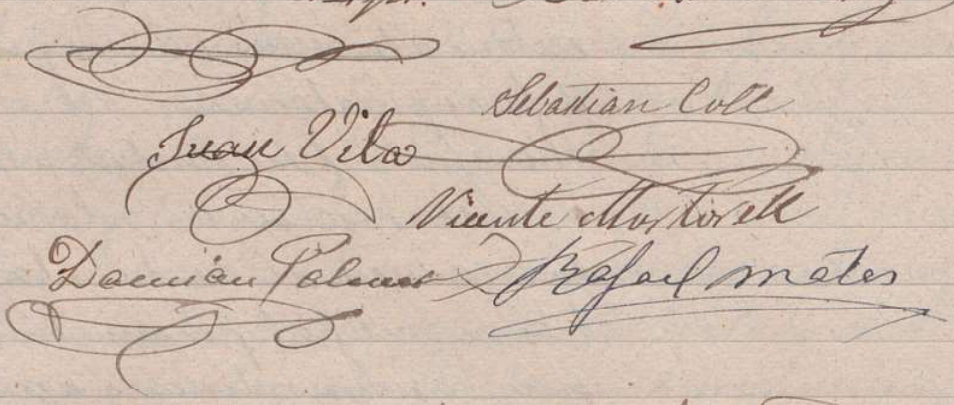 Sebastian Coll
Juan Vila
Vicente Martorell
Damian Palmer
Rafael mates